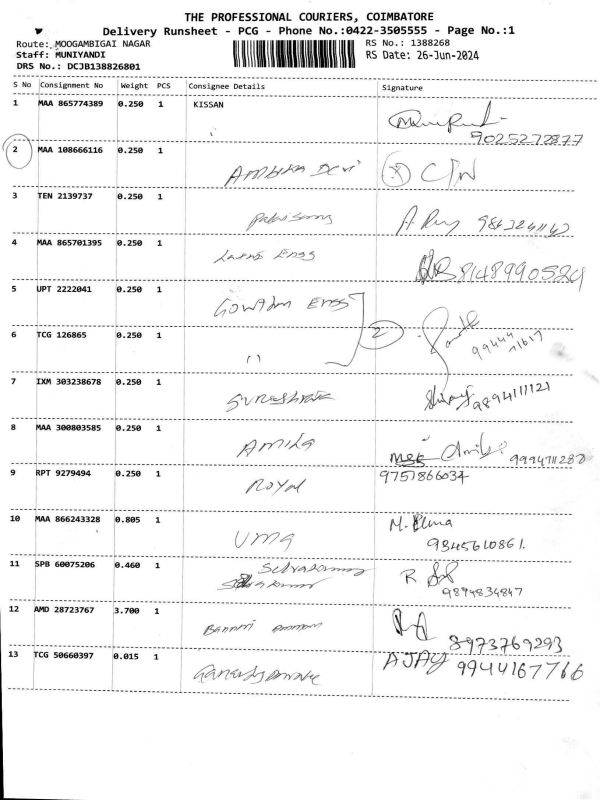 THE PROFESSIONAL COURIERS, COIMBATORE
Delivery Runsheet - PCG - Phone No.:0422-3505555 - Page No.:1
Route: MOOGAMBIGAI NAGAR
RS No.: 1388268
Staff: MUNIYANDI
RS Date: 26-Jun-2024
DRS No.: DCJB138826801
S No Consignment No Weight PCS Consignee Details Signature
1 MAA 865774389 0.250 1 KISSAN
9025272877
2 MAA 108666116 0.250 1 AMBIKA Devi
3 TEN 2139737 0.250 1
4 MAA 865701395 0.250 1 Engg 8148990524
5 UPT 2222041 0.250 1 GOWTHM Engg
2
6 TCG 126865 0.250 1 11
99444 71617
7 IXM 303238678 0.250 1 9894111121
8 MAA 300803585 0.250 1 9994711280
9 RPT 9279494 0.250 1 ROYAL 9751866034
10 MAA 866243328 0.805 1 UMA M. Uma
9345610861.
11 SPB 60075206 0.460 1 Selvakumar R
9894834847
12 AMD 28723767 3.700 1 Bannari Amman
8973769293
13 TCG 50660397 0.015 1 AJAY 9944167766